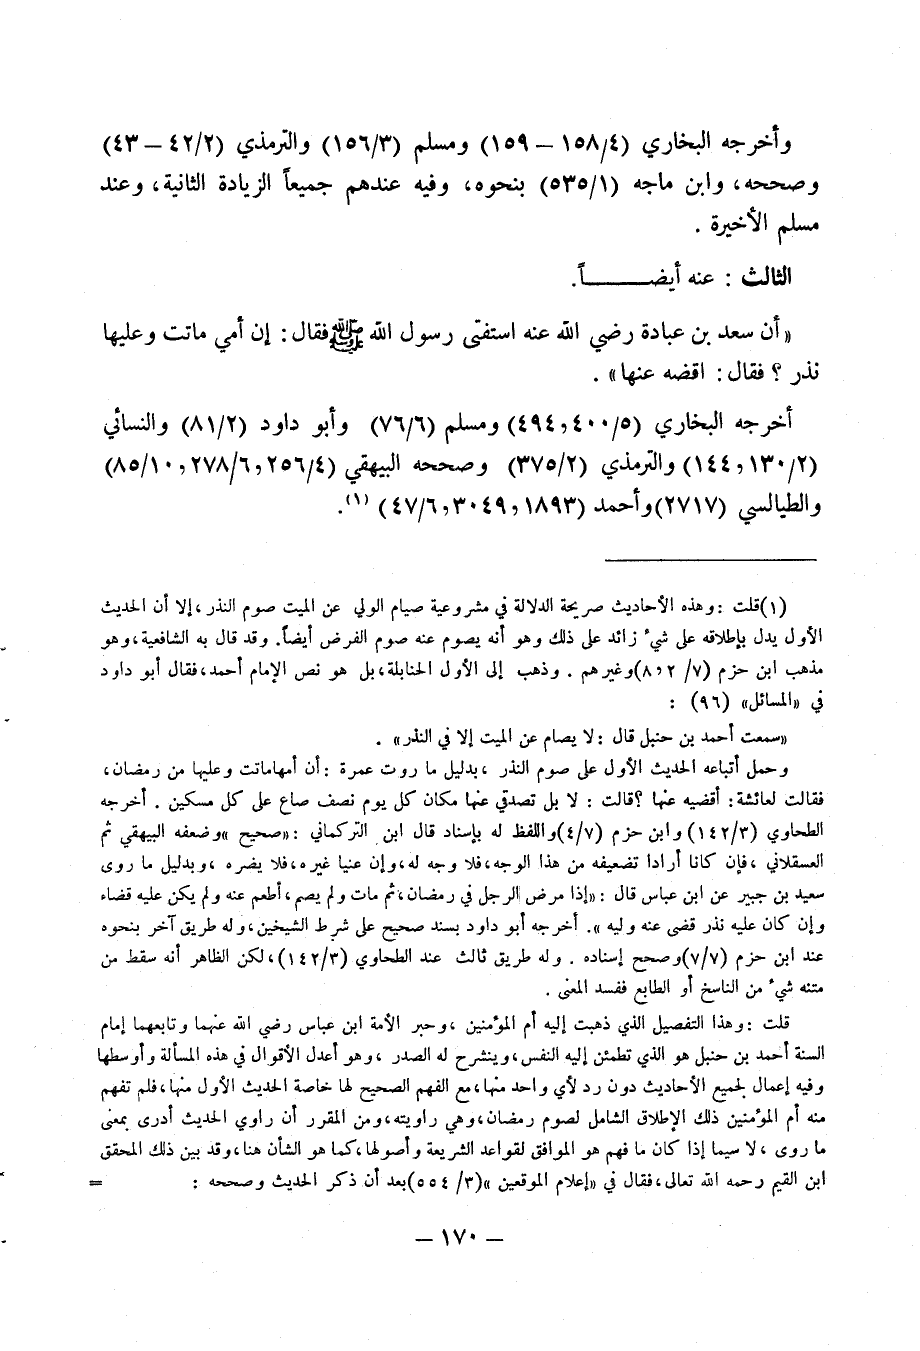 وأخرجه البخاري (١٥٨/٤ — ١٥٩) ومسلم (١٥٦/٣) والترمذي (٤٢/٢ — ٤٣)
وصححه، وابن ماجه (٥٣٥/١) بنحوه، وفيه عندهم جميعاً الزيادة الثانية، وعند
مسلم الأخيرة .
الثالث : عنه أيضـــــــاً.
«أن سعد بن عبادة رضي الله عنه استفتى رسول الله ﷺ فقال: إن أمي ماتت وعليها
نذر ؟ فقال: اقضه عنها» .
أخرجه البخاري (٤٩٤,٤٠٠/٥) ومسلم (٧٦/٦) وأبو داود (٨١/٢) والنسائي
(١٤٤,١٣٠/٢) والترمذي (٣٧٥/٢) وصححه البيهقي (٨٥/١٠,٢٧٨/٦,٢٥٦/٤)
والطيالسي (٢٧١٧) وأحمد (٤٧/٦,٣٠٤٩,١٨٩٣) (١).
(١) قلت :وهذه الأحاديث صريحة الدلالة في مشروعية صيام الولي عن الميت صوم النذر ،إلا أن الحديث
الأول يدل بإطلاقه على شيء زائد على ذلك وهو أنه يصوم عنه صوم الفرض أيضاً. وقد قال به الشافعية،وهو
مذهب ابن حزم (٧/ ٨,٢)وغيرهم . وذهب إلى الأول الحنابلة،بل هو نص الإمام أحمد،فقال أبو داود
في «المسائل» (٩٦) :
«سمعت أحمد بن حنبل قال :لا يصام عن الميت إلا في النذر» .
وحمل أتباعه الحديث الأول على صوم النذر ،بدليل ما روت عمرة :أن أمهاماتت وعليها من رمضان،
فقالت لعائشة: أقضيه عنها ؟قالت : لا بل تصدقي عنها مكان كل يوم نصف صاع على كل مسكين . أخرجه
الطحاوي (١٤٢/٣) وابن حزم (٤/٧)واللفظ له بإسناد قال ابن التركماني :«صحيح »وضعفه البيهقي ثم
العسقلاني ،فإن كانا أرادا تضعيفه من هذا الوجه،فلا وجه له،وإن عنيا غيره،فلا يضره ،وبدليل ما روى
سعيد بن جبير عن ابن عباس قال :«إذا مرض الرجل في رمضان،ثم مات ولم يصم،أطعم عنه ولم يكن عليه قضاء
وإن كان عليه نذر قضى عنه وليه ». أخرجه أبو داود بسند صحيح على شرط الشيخين،وله طريق آخر بنحوه
عند ابن حزم (٧/٧)وصحح إسناده . وله طريق ثالث عند الطحاوي (١٤٢/٣)،لكن الظاهر أنه سقط من
متنه شيء من الناسخ أو الطابع ففسد المعنى .
قلت :وهذا التفصيل الذي ذهبت إليه أم المؤمنين ،وحبر الأمة ابن عباس رضي الله عنهما وتابعهما إمام
السنة أحمد بن حنبل هو الذي تطمئن إليه النفس،وينشرح له الصدر ،وهو أعدل الأقوال في هذه المسألة وأوسطها
وفيه إعمال لجميع الأحاديث دون رد لأي واحد منها،مع الفهم الصحيح لها خاصة الحديث الأول منها،فلم تفهم
منه أم المؤمنين ذلك الإطلاق الشامل لصوم رمضان،وهي راويته،ومن المقرر أن راوي الحديث أدرى بمعنى
ما روى ،لا سيما إذا كان ما فهم هو الموافق لقواعد الشريعة وأصولها،كما هو الشأن هنا،وقد بين ذلك المحقق
ابن القيم رحمه الله تعالى،فقال في «إعلام الموقعين »(٣/ ٥٥٤)بعد أن ذكر الحديث وصححه : =
— ١٧٠ —